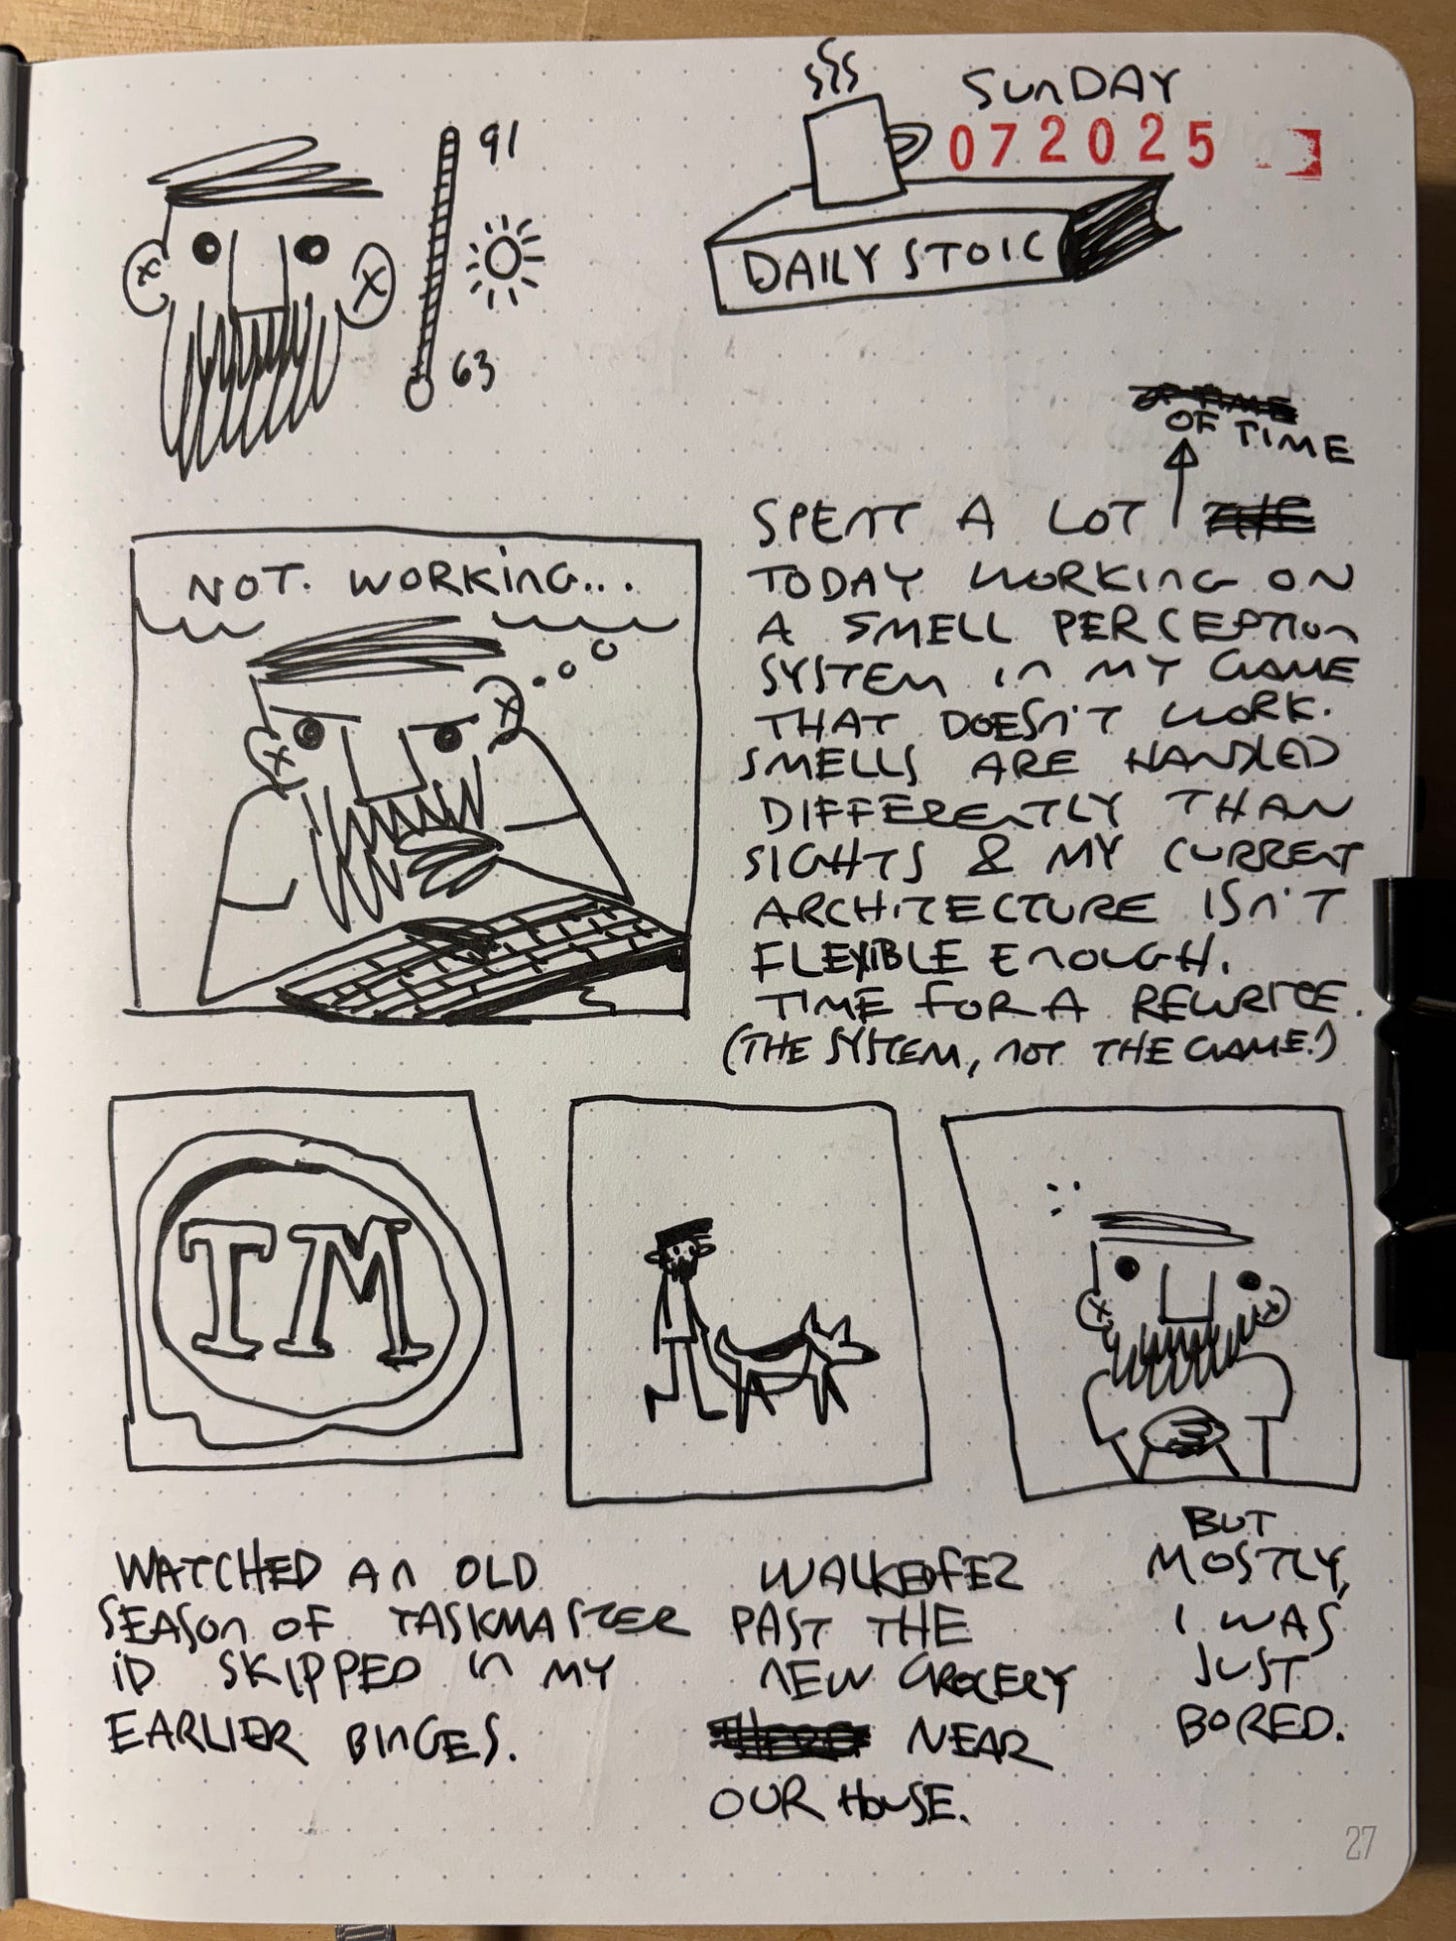 SUNDAY
072025
91
63
DAILY STOIC
NOT WORKING...
OF TIME
SPENT A LOT
TODAY WORKING ON
A SMELL PERCEPTION
SYSTEM IN MY GAME
THAT DOESN'T WORK.
SMELLS ARE HANDLED
DIFFERENTLY THAN
SIGHTS & MY CURRENT
ARCHITECTURE ISN'T
FLEXIBLE ENOUGH.
TIME FOR A REWRITE.
(THE SYSTEM, NOT THE GAME.)
TM
WATCHED AN OLD
SEASON OF TASKMASTER
ID SKIPPED IN MY
EARLIER BINGES.
WALKED FEZ
PAST THE
NEW GROCERY
NEAR
OUR HOUSE.
BUT
MOSTLY,
I WAS
JUST
BORED.
27